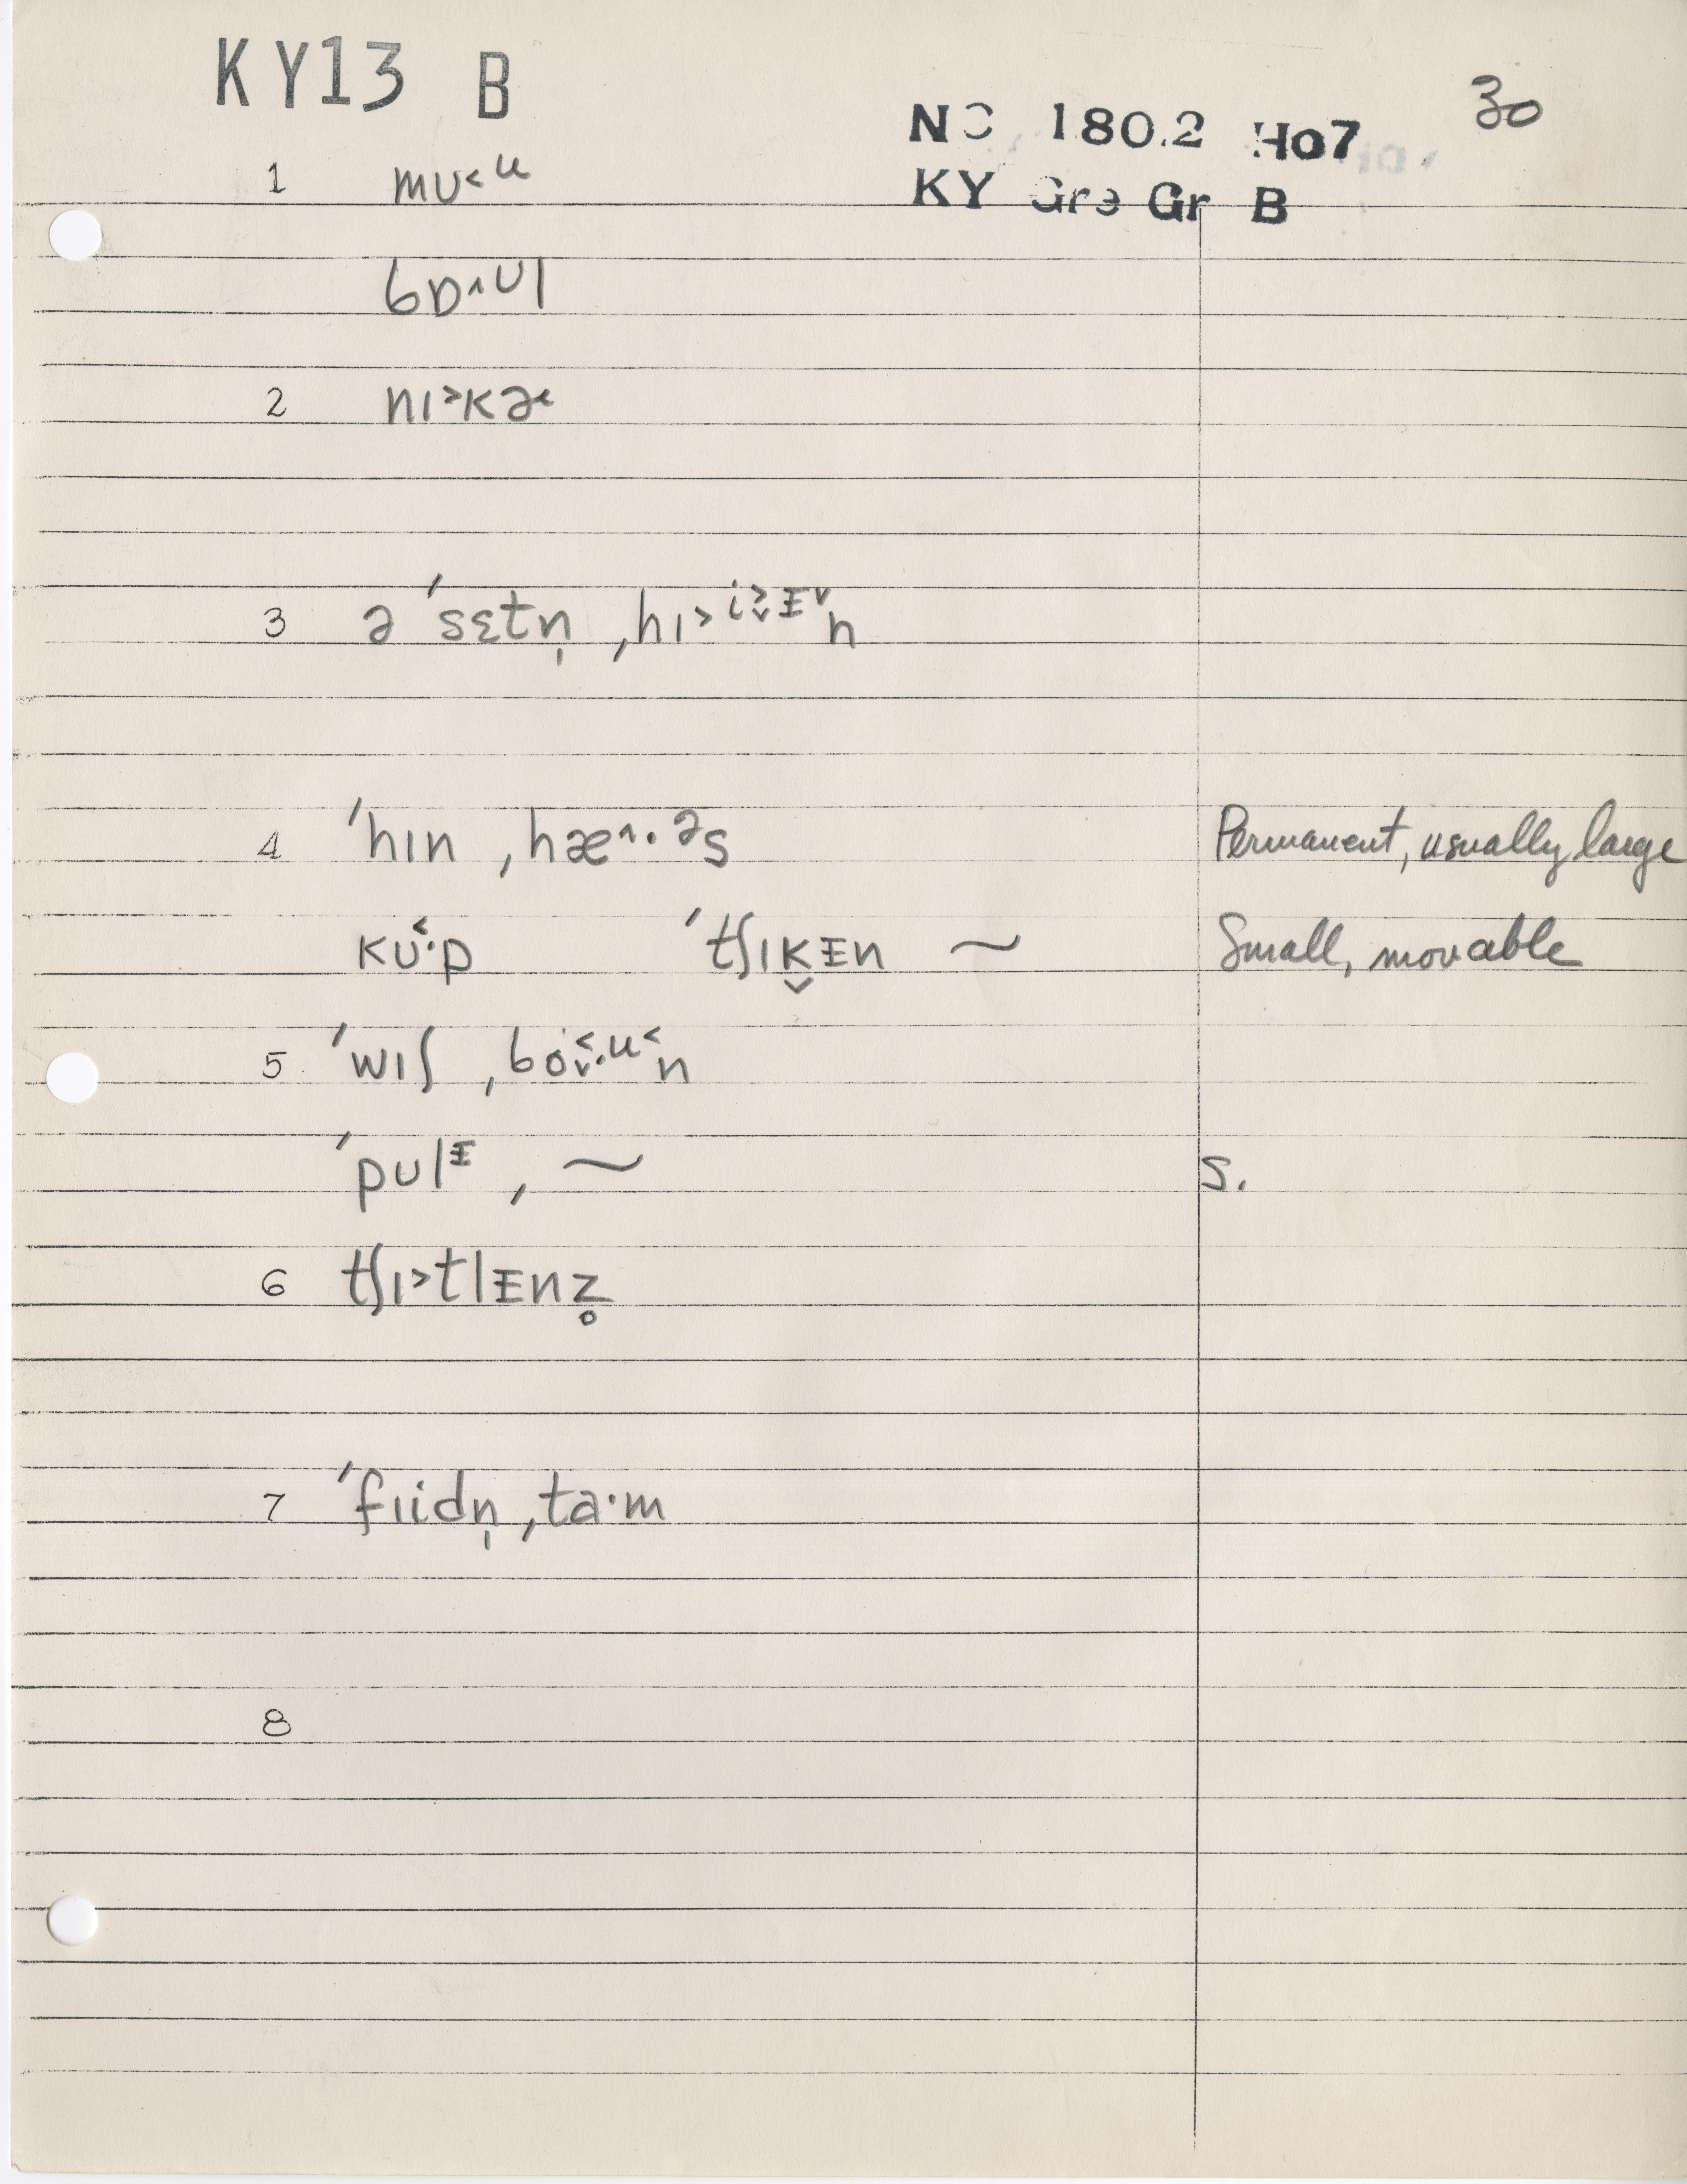 KY13 B
30
NC 180.2 Ho7
KY Gre Gr B
1 mʊ˂ᵘ
bɒ˄ʊl
2 nɪ˃kə˞
3 ə ˈsɛtn̩ ,hɪ˃ⁱ˃̬ᶧ˅n
4 ˈhɪn ,hæ˄·ᵊs Permanent, usually large
kʊ˂·p ˈtʃɪk̬ᵻn ~ Small, movable
5 ˈwɪʃ ,bo˂̬·ᵘ˂n
ˈpʊlᵻ , ~ S.
6 tʃɪ˃tlᵻnz̥
7 ˈfɪidn̩ ,ta·m
8